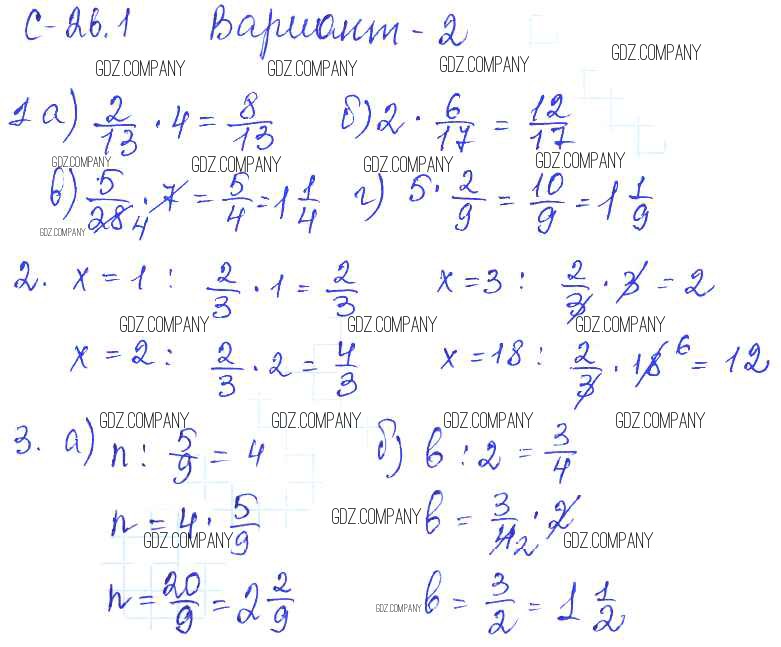 С-26.1 Вариант-2
GDZ.COMPANY GDZ.COMPANY GDZ.COMPANY GDZ.COMPANY
1 а) 2/13 · 4 = 8/13 б) 2 · 6/17 = 12/17
GDZ.COMPANY GDZ.COMPANY GDZ.COMPANY GDZ.COMPANY
в) 5/28 4 · 7 = 5/4 = 1 1/4 г) 5 · 2/9 = 10/9 = 1 1/9
GDZ.COMPANY
2. x = 1 : 2/3 · 1 = 2/3 x = 3 : 2/3 · 3 = 2
GDZ.COMPANY GDZ.COMPANY GDZ.COMPANY
x = 2 : 2/3 · 2 = 4/3 x = 18 : 2/3 · 18 6 = 12
GDZ.COMPANY GDZ.COMPANY GDZ.COMPANY GDZ.COMPANY
3. а) n : 5/9 = 4 б) в : 2 = 3/4
n = 4 · 5/9 GDZ.COMPANY в = 3/4 2 · 2
GDZ.COMPANY GDZ.COMPANY
n = 20/9 = 2 2/9 GDZ.COMPANY в = 3/2 = 1 1/2